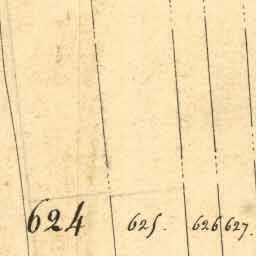 624 625. 626 627.